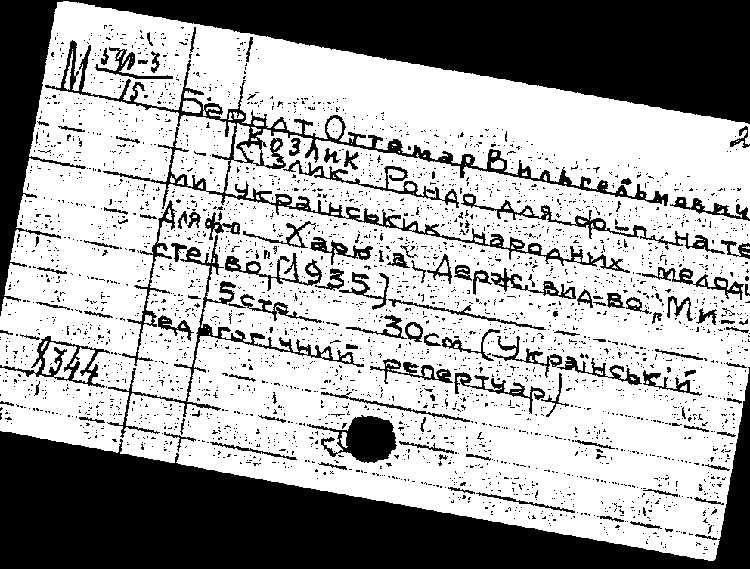 М 590-3
15.
2
Берндт Оттомар Вильгельмович
Козлик
Злик. Рондо для ф-п. на те-
ми українських народних мелоді
Для фо. Харків, Держ. вид-во „Ми-
стецтво", [1935].
5 стр. 30 cm (Український
педагогічний репертуар)
8344